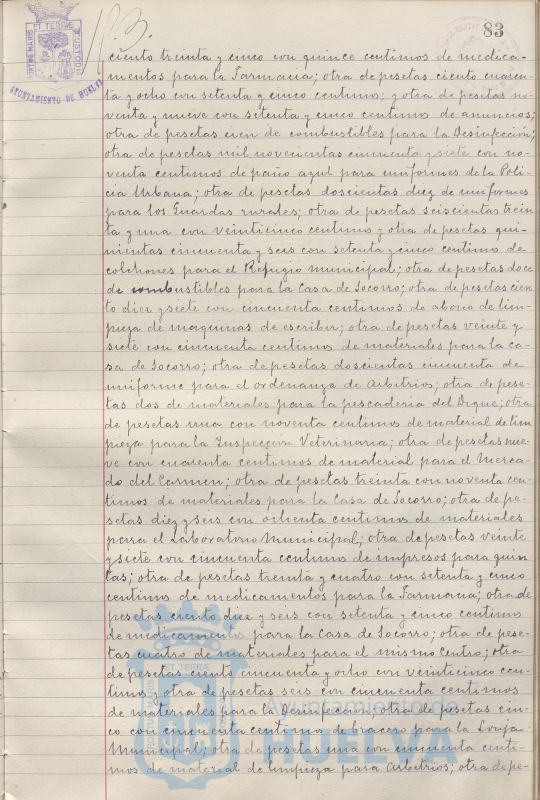 83
AYUNTAMIENTO DE HUELVA
ciento treinta y cinco con quince centimos de medica-
mentos para la Farmacia; otra de pesetas ciento cuaren-
ta y ocho con setenta y cinco centimos; y otra de pesetas no-
venta y nueve con setenta y cinco centimos de anuncios;
otra de pesetas cien de combustibles para la Desinfección;
otra de pesetas mil novecientas cincuenta y siete con no-
venta centimos de paño azul para uniformes de la Poli-
cia Urbana; otra de pesetas doscientas diez de uniformes
para los Guardas rurales; otra de pesetas seiscientas trein
ta y una con veinticinco centimos y otra de pesetas qui-
nientas cincuenta y seis con setenta y cinco centimos de
colchones para el Refugio Municipal; otra de pesetas doce
de combustibles para la Casa de Socorro; otra de pesetas cien
to diez y siete con cincuenta centimos de abono de lim-
pieza de maquinas de escribir; otra de pesetas veinte y
siete con cincuenta centimos de materiales para la ca-
sa de Socorro; otra de pesetas doscientas cincuenta de
uniforme para el ordenanza de Arbitrios; otra de pese-
tas dos de materiales para la pescaderia del Dique; otra
de pesetas una con noventa centimos de material de lim
pieza para la Inspección Veterinaria; otra de pesetas nue-
ve con cuarenta centimos de material para el Merca-
do del Carmen; otra de pesetas treinta con noventa cen-
timos de materiales para la Casa de Socorro; otra de pe-
setas diez y seis con ochenta centimos de materiales
para el Laboratorio Municipal; otra de pesetas veinte
y siete con cincuenta centimos de impresos para quin-
tas; otra de pesetas treinta y cuatro con setenta y cinco
centimos de medicamentos para la Farmacia; otra de
pesetas ciento diez y seis con setenta y cinco centimos
de medicamentos para la Casa de Socorro; otra de pese-
tas cuatro de materiales para el mismo Centro; otra
de pesetas ciento cincuenta y ocho con veinticinco cen-
timos y otra de pesetas seis con cincuenta centimos
de materiales para la Desinfeccion; otra de pesetas cin-
co con cincuenta centimos de bracero para la Lonja
Municipal; otra de pesetas una con cincuenta centi-
mos de material de limpieza para Arbitrios; otra de pe-
Ayuntamiento de
HUELVA